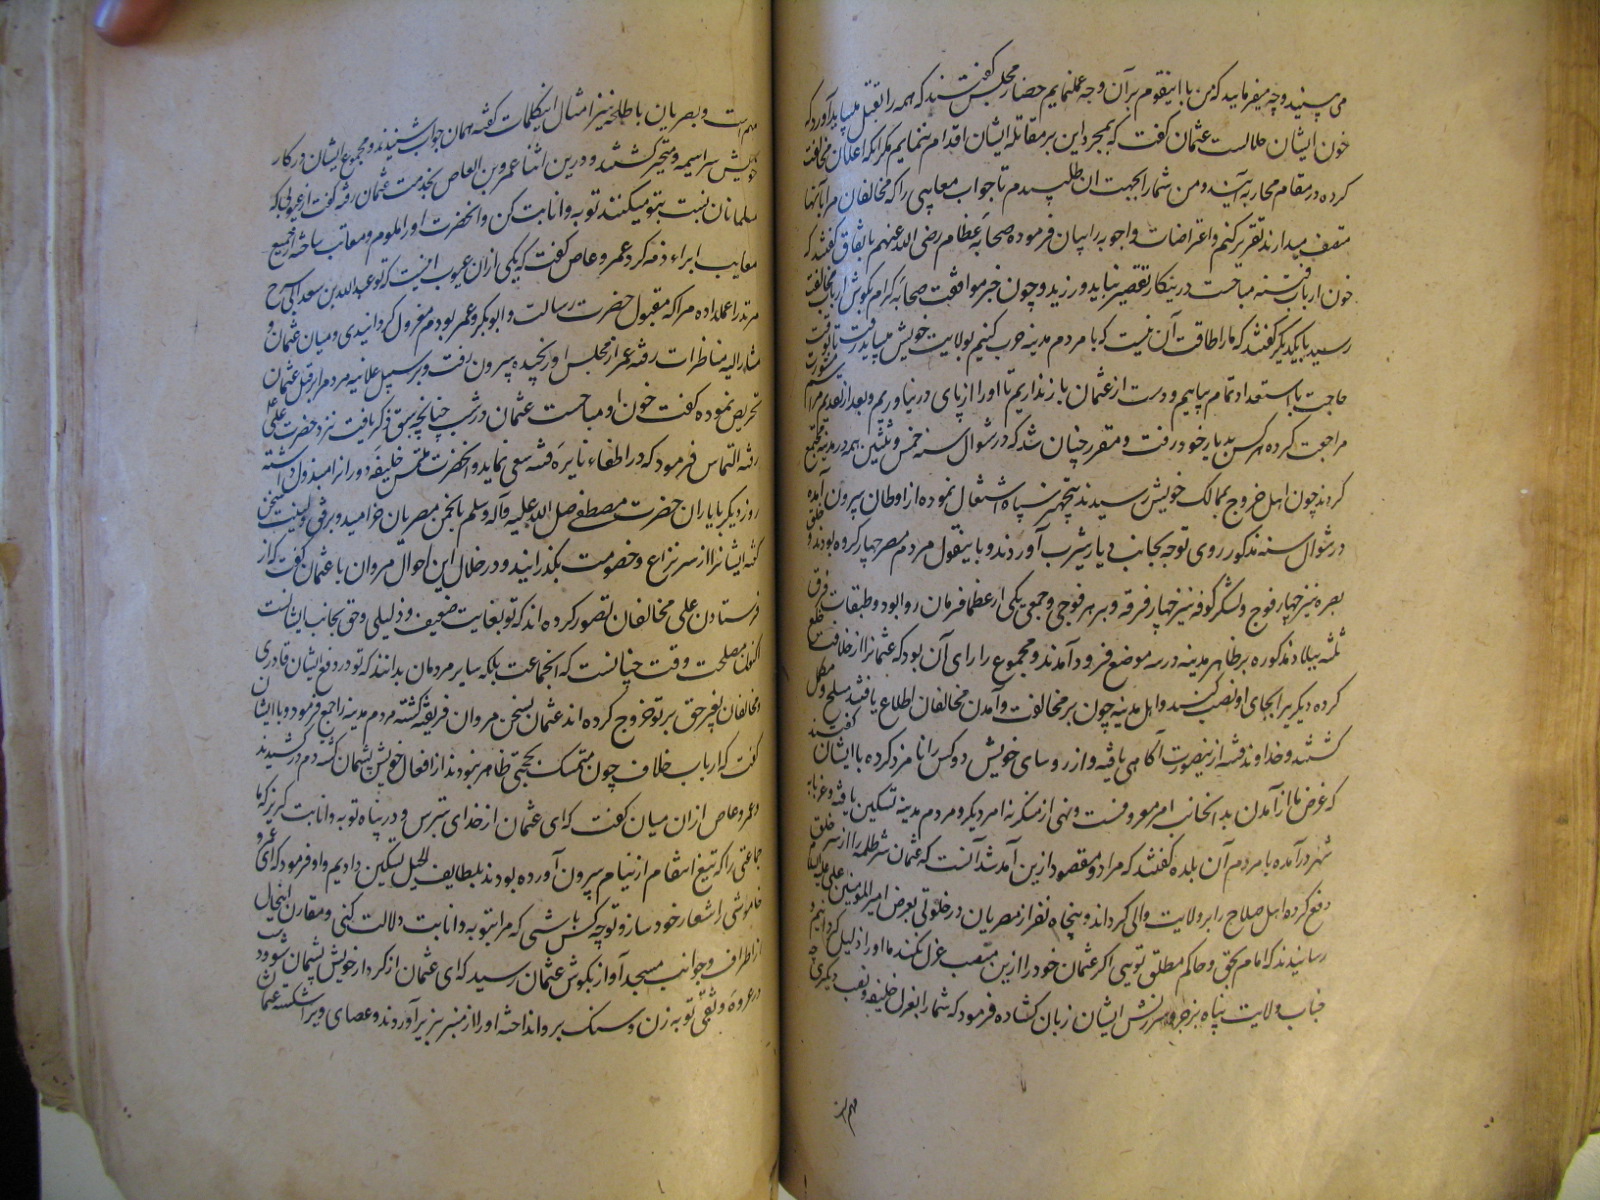 می‌بینید و چه میفرمایید که من با اینقوم بر آن وجه عمل نمایم حضار مجلس گفتند که همه را بقتل میباید آورد که
خون ایشان حلالست عثمان گفت که بمجرد این بر مقاتله ایشان اقدام ننمایم مگر آنکه اعلان مخالفت
کرده در مقام محاربه آیند و من شما را بجهت آن طلبیدم تا جواب معایبی را که مخالفان مرا بآنها
متصف میدارند تقریر کنم و اعتراضات و اجوبه را بیان فرموده صحابه عظام رضی الله عنهم باتفاق گفتند که
خون ارباب فتنه مباحست درینکار تقصیر نباید ورزید و چون خبر موافقت صحابه کرام بگوش ارباب مخالفت
رسید با یکدیگر گفتند که ما را طاقت آن نیست که با مردم مدینه حرب کنیم بولایت خویش میباید رفت تا بوقت
حاجت با استعداد تمام بیاییم و دست از عثمان باز نداریم تا او را از پای در نیاوریم و بعد از تقدیم مراسم مشورت
مراجعت کرده هر کس بدیار خود رفت و مقرر چنان شد که در شوال سنه خمس و ثلثین همه در مدینه مجتمع
گردند چون اهل خروج بممالک خویش رسیدند بتجهیز سپاه اشتغال نموده از اوطان بیرون آمده
در شوال سنه مذکور روی توجه بجانب دیار یثرب آوردند و باینقول مردم مصر چهار گروه بودند و خلق
بصره نیز چهار فوج و لشگر کوفه نیز چهار فرقه و بر هر فوجی و جمعی یکی از عظما فرمان روا بود و طبقات فرق
ثلثه بیلاد مذکوره بر ظاهر مدینه در سه موضع فرود آمدند و مجموع را رای آن بود که عثمانرا از خلافت خلع
کرده دیگری را بجای او نصب کنند و اهل مدینه چون بر مخالفت و آمدن مخالفان اطلاع یافتند مسلح و مکمل
گشتند و خداوند فتنه از ینصورت آگاهی یافته و از روسای خویش دو کس را نامزد کرده با ایشان گفتند
که غرض ما از آمدن بدانجانب امر معروفست و نهی از منکر نه امر دیگر و مردم مدینه تسکین یافته و غربا
شهر در آمده با مردم آن بلده گفتند که مراد و مقصود ازین آمد شد آنست که عثمان شر ظلمه را از سر خلق
دفع کرده اهل صلاح را بر ولایت والی گرداند و پنجاه نفر از مصریان در خلوتی بعرض امیر المومنین علی علیه السلام
رسانیدند که امام بحق و حاکم مطلق تویی اگر عثمان خود را ازین منصب عزل نکند ما او را ذلیل گردانیم و
جناب ولایت پناه بزجر و سرزنش ایشان زبان گشاده فرمود که شما را بعزل خلیفه و نصب دیگری چه
مهم است
مهم است و بصریان با طلحه نیز امثال اینکلمات گفته همان جواب شنیدند و مجموع ایشان در کار
خویش سراسیمه و متحیر گشتند و درین اثنا عمرو بن العاص بخدمت عثمان رفته گفت از عیوبی که
مسلمانان نسبت بتو میکنند توبه و انابت کن و آنحضرت او را ملوم و معاتب ساخته از جمیع
معایب ابراء ذمه کرد عمرو عاص گفت که یکی از آن عیوب اینست که تو عبد الله بن سعد ابی سرح
مرتد را عمل داده مرا که مقبول حضرت رسالت و ابوبکر و عمر بودم معزول گردانیدی و میان عثمان و
مشار الیه مناظرات رفته عمرو از مجلس او رنجیده بیرون رفت و بر سبیل علانیه مردم را بر قتل عثمان
تحریص نموده گفت خون او مباحست عثمان در شب چنانچه سبق ذکر یافت نزد حضرت علی
رفته التماس فرمود که در اطفاء نایره فتنه سعی نماید و آنحضرت ملتمس خلیفه دور از را مبذول داشته
روز دیگر با یاران حضرت مصطفی صلی الله علیه و آله وسلم بانجمن مصریان خرامید و برفق و لینت سخن
گفته ایشانرا از سر نزاع و خصومت بگذرانید و در خلال این احوال مروان با عثمان گفت که از
فرستادن علی مخالفان تصور کرده اند که تو بغایت ضعیف و ذلیلی و حق بجانب ایشانست
اکنون مصلحت وقت چنانست که آنجماعت بلکه سایر مردمان بدانند که تو در دفع ایشان قادری
و مخالفان بغیر حق بر تو خروج کرده اند عثمان بسخن مروان فریفته گشته مردم مدینه را جمع فرمود و با ایشان
گفت که ارباب خلاف چون متمسک بحجتی ظاهر نبودند از افعال خویش پشیمان گشته دم در کشیدند
و عمرو عاص از آن میان گفت که ای عثمان از خدای بترس و در پناه توبه و انابت گریز که ما
جماعتی را که تیغ انتقام از نیام بیرون آورده بودند بلطایف الحیل تسکین دادیم و او فرمود که ای عمرو
خاموشی را شعار خود ساز و تو چه کس باشی که مرا بتوبه و انابت دلالت کنی و مقارن اینحال
از اطراف و جوانب مسجد آواز بگوش عثمان رسید که ای عثمان از کردار خویش پشیمان شو و دست
در عروه وثقی توبه زن و سنگ بر و انداخته او را از منبر بزیر آوردند و عصای ویرا شکسته عثمان